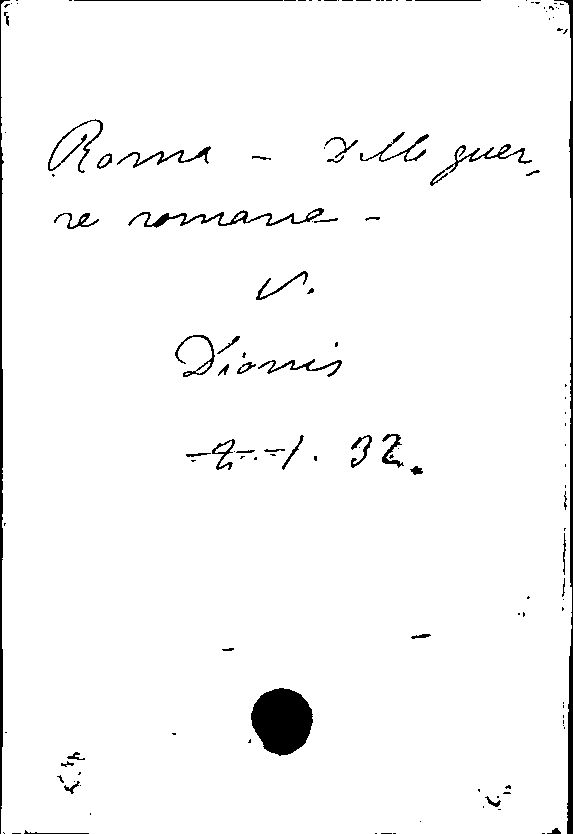 Roma - Delle guer,
re romane -
V.
Dionis
32.